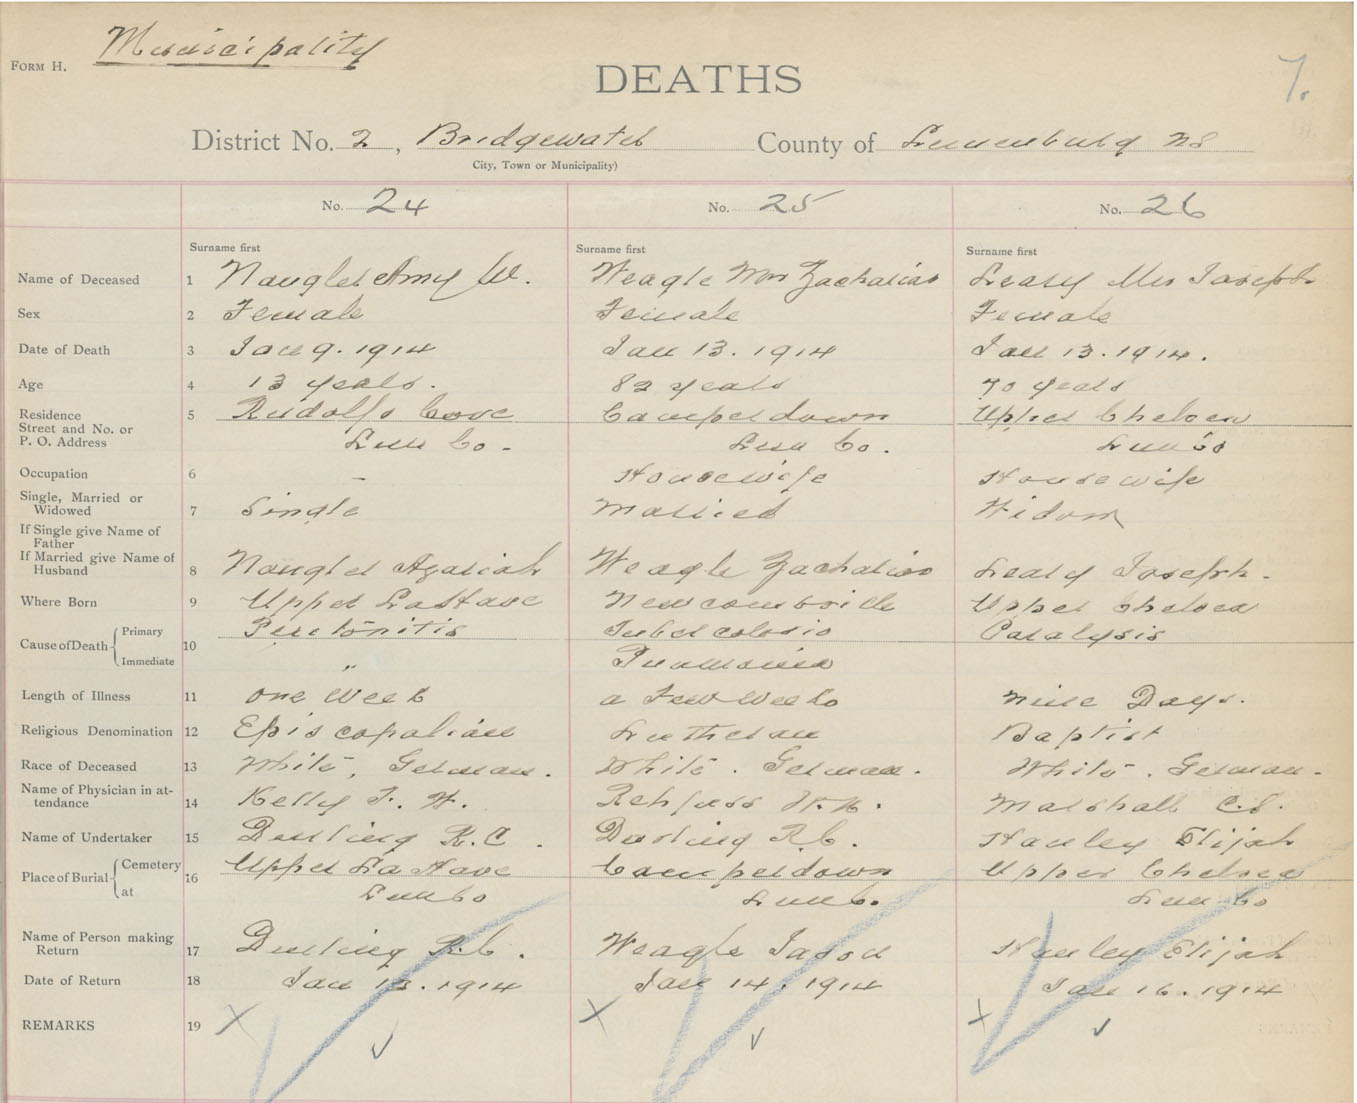 Municipality
FORM H.
DEATHS
7.
District No. 2, Bridgewater County of Lunenburg NS
City, Town or Municipality)
No. 24 No. 25 No. 26
Surname first Surname first Surname first
Name of Deceased 1 Naugler Amy W. Weagle Mrs Zacharias Leary Mrs Joseph
Sex 2 Female Female Female
Date of Death 3 Jan 9. 1914 Jan 13. 1914 Jan 13. 1914.
Age 4 13 years. 82 years 70 years
Residence 5 Rudolfs Cove Camperdown Upper Chelsea
Street and No. or
P. O. Address Lun Co. Lun Co. Lun Co
Occupation 6 – Housewife Housewife
Single, Married or
Widowed 7 Single Married Widow
If Single give Name of
Father
If Married give Name of
Husband 8 Naugler Azariah Weagle Zacharias Leary Joseph.
Where Born 9 Upper LaHave Newcombville Upper Chelsea
Cause of Death Primary 10 Peritonitis Tuberculosis Paralysis
Immediate " Pneumonia
Length of Illness 11 One Week a Few Weeks Nine Days.
Religious Denomination 12 Episcopalian Lutheran Baptist
Race of Deceased 13 White, German. White. German. White. German.
Name of Physician in at-
tendance 14 Kelly F. W. Rehfuss W. N. Marshall C. S.
Name of Undertaker 15 Durling R. C. Durling R. C. Hanley Elijah
Place of Burial Cemetery 16 Upper LaHave Camperdown Upper Chelsea
at Lun Co Lun Co. Lun Co
Name of Person making
Return 17 Durling R. C. Weagle Jason Hanley Elijah
Date of Return 18 Jan 13. 1914 Jan 14. 1914 Jan 16. 1914
REMARKS 19